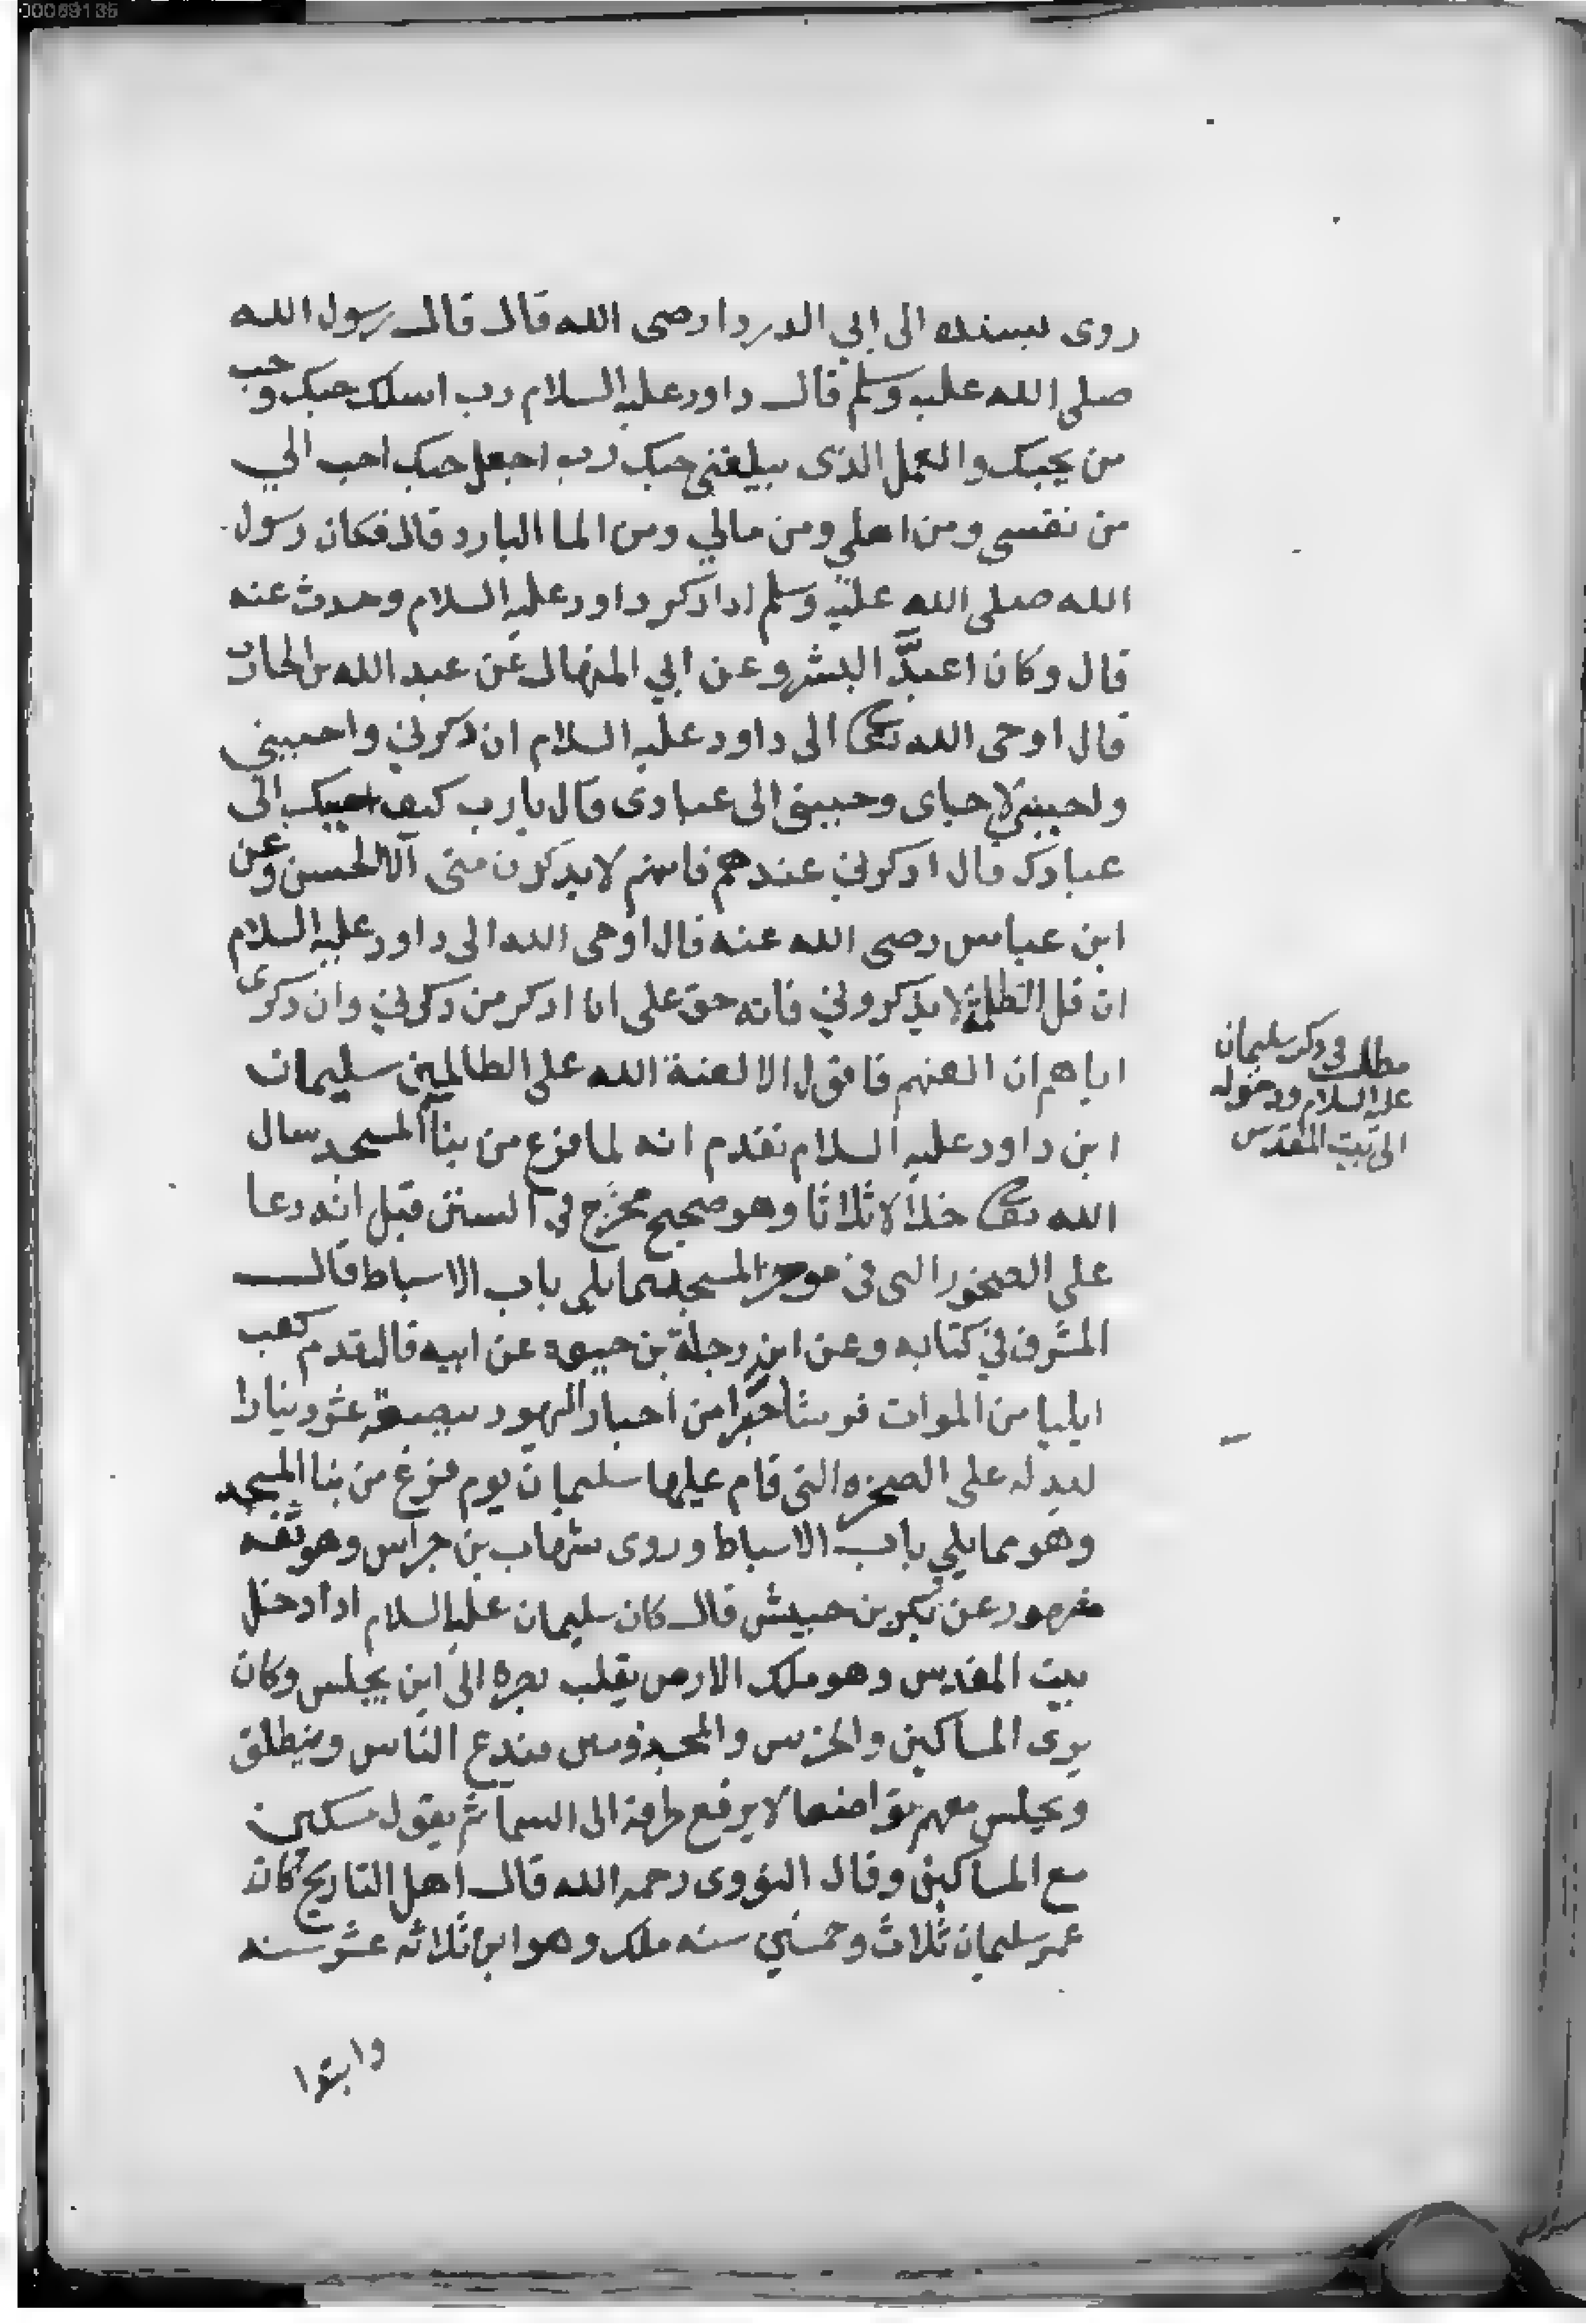 00069135
روى بسنده الى ابي الدردا رضى الله قال قال رسول الله
صلى الله عليه وسلم قال داود عليه السلام رب اسلك حبك وحب
من يحبك والعمل الذى يبلغنى حبك رب اجعل حبك احب الي
من نفسى ومن اهلي ومن مالي ومن الما البارد قال فكان رسول
الله صلى الله عليه وسلم اذا ذكر داود عليه السلام وحدث عنه
قال وكان اعبد البشر وعن ابي المنهال عن عبد الله بن الحارث
قال اوحى الله تعالى الى داود عليه السلام ان ذكرني واحببني
ولحببني لاحباى وحببنى الى عبادى قال يارب كيف احببك الى
عبادك قال اذكرني عندهم فانهم لا يذكرون منى الا الحسن وعن
ابن عباس رضى الله عنه قال اوحى الله الى داود عليه السلام
ان قل للظلمة لا يذكروني فانه حق على انا اذكر من ذكرني وان ذكرى
اياهم ان العنهم فاقول الا لعنة الله على الظالمين سليمان
ابن داود عليه السلام تقدم انه لما فرغ من بنا المسجد سال
الله تعالى خلالا ثلاثا وهو صحيح مخرج في السنن قيل انه دعا
على الصخور التى في موخر المسجد مما يلي باب الاسباط قال
المشرف في كتابه وعن ابن رجاة بن حيوة عن ابيه قال قدم كعب
ايليا من المرات فرشا حبرا من احبار اليهود ببضعة عشر دينارا
ليدله على الصخره التى قام عليها سليمان يوم فرغ من بنا المسجد
وهو مما يلي باب الاسباط وروى شهاب بن خراس وهو ثقه
عن بكر بن حبيش قال كان سليمان عليه السلام اذا دخل
بيت المقدس وهو ملك الارض يقلب بصره الى اين يجلس وكان
يرى المساكين والخرس والمجذومين فيدع الناس وينطلق
ويجلس معهم تواضعا لا يرفع طرفه الى السما ثم يقول مسكين
مع المساكين وقال النووى رحمه الله قال اهل التاريخ كان
عمر سليمان ثلاث وخمسين سنه ملك وهو ابن ثلاثه عشر سنه
وابتدا
مطلب في ذكر سليمان
عليه السلام ودخوله
الى بيت المقدس